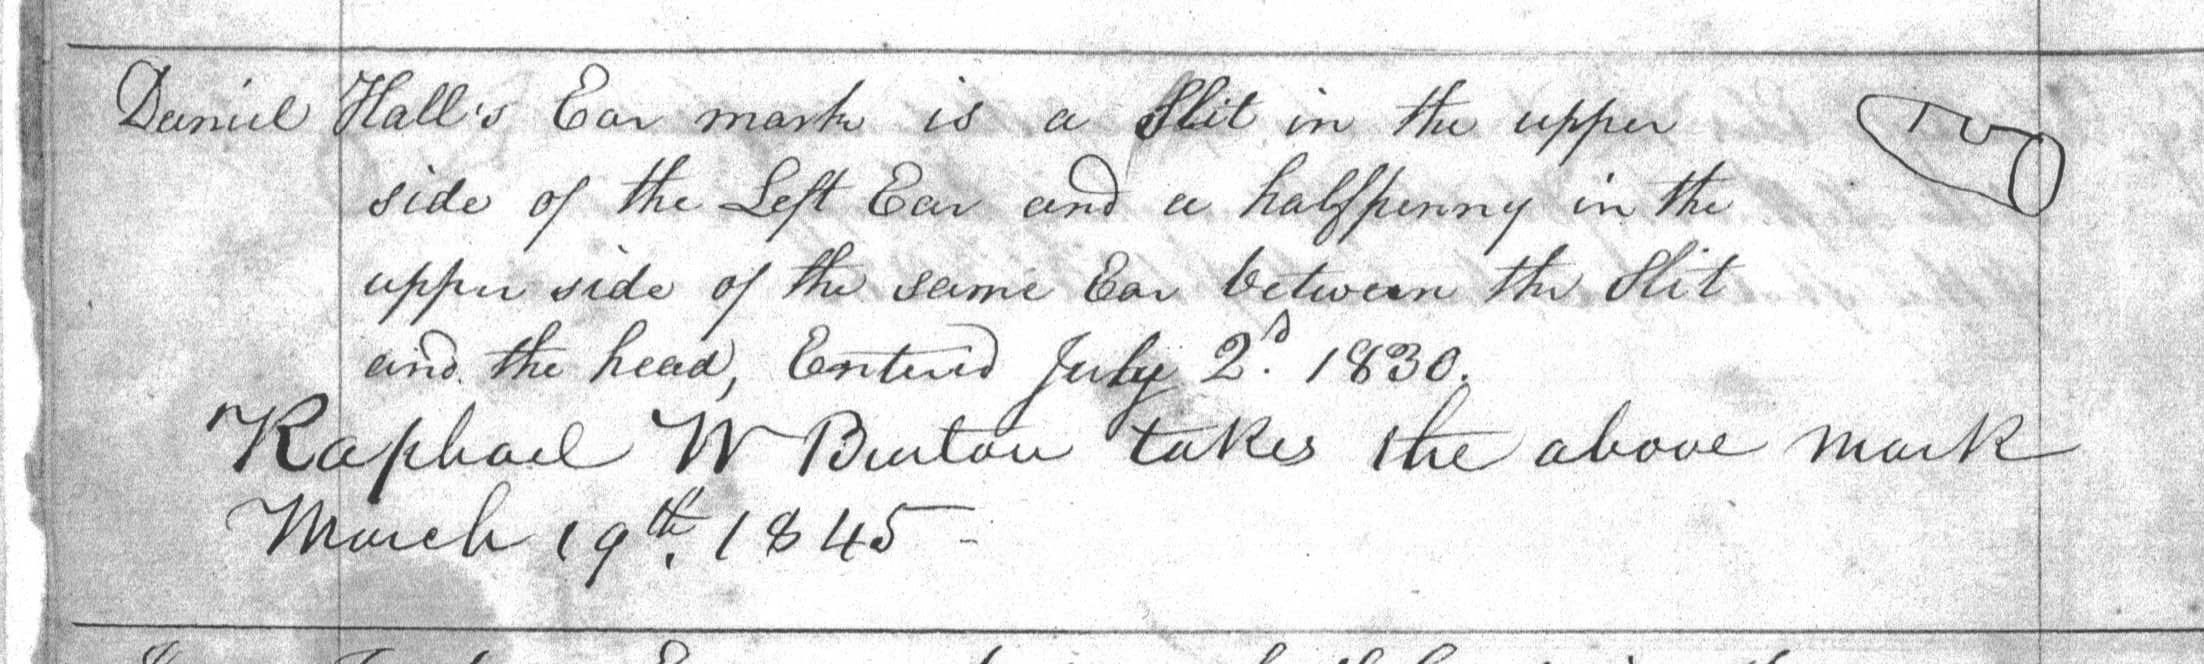 Daniel Hall's Ear mark is a Slit in the upper
side of the Left Ear and a halfpenny in the
upper side of the same Ear between the Slit
and the head, Entered July 2d. 1830.
Raphael W Burton takes the above mark
March 19th. 1845 -